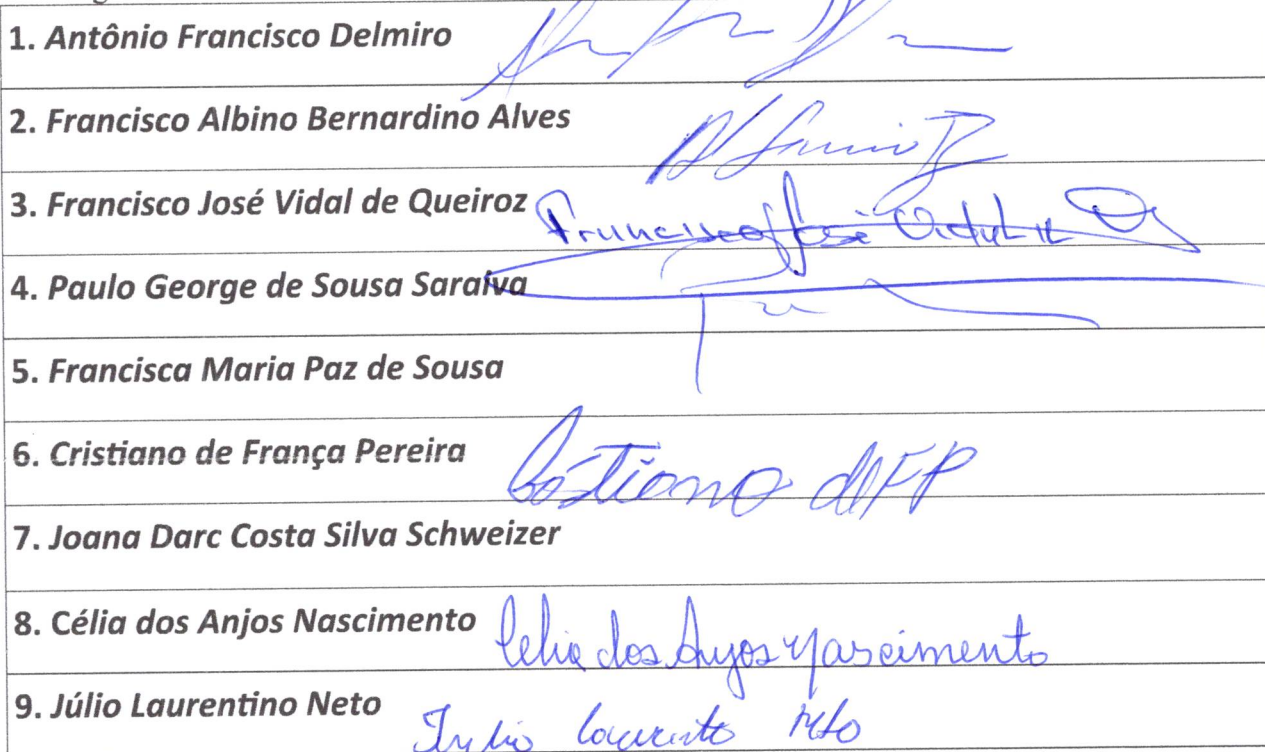 1. Antônio Francisco Delmiro
2. Francisco Albino Bernardino Alves
3. Francisco José Vidal de Queiroz Francisco José Vidal
4. Paulo George de Sousa Saraiva
5. Francisca Maria Paz de Sousa
6. Cristiano de França Pereira Cristiano dFP
7. Joana Darc Costa Silva Schweizer
8. Célia dos Anjos Nascimento Celia dos Anjos Nascimento
9. Júlio Laurentino Neto